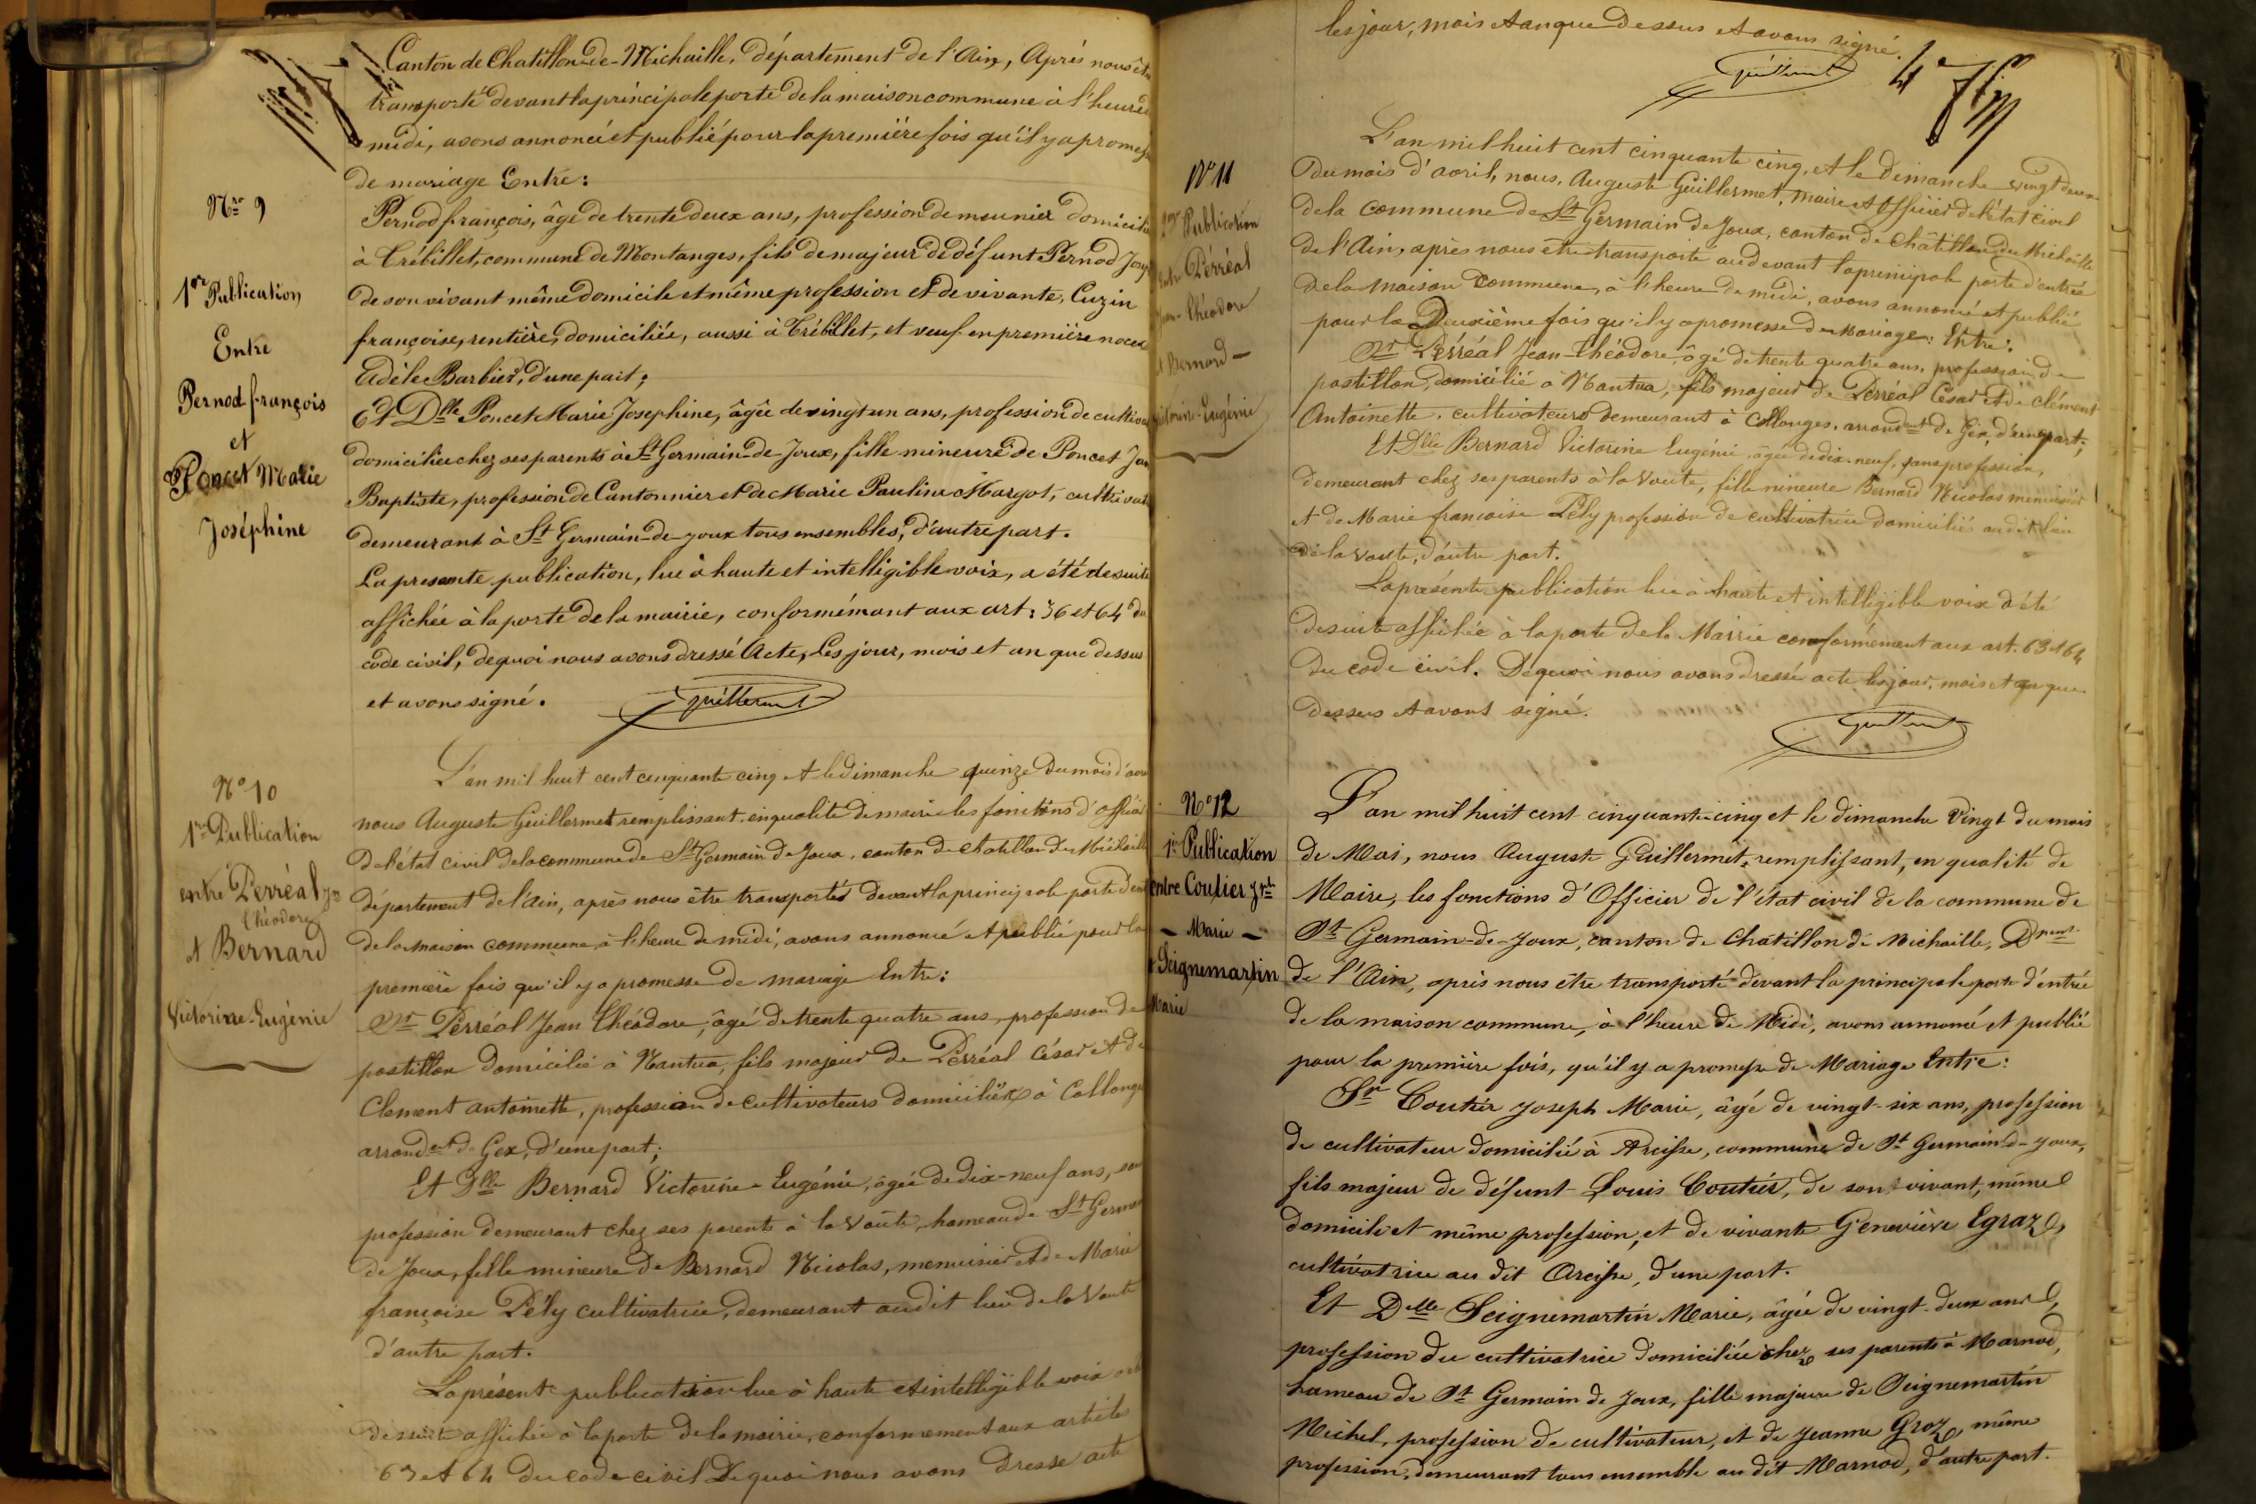 Canton de Chatillon-de-Michaille, département de l'Ain, Après nous être
transporté devant la principale porte de la maison commune à l'heure de
midi, avons annoncé et publié pour la première fois qu'il y a promesse
de mariage Entre:
Nro 9
1re Publication
Entre
Pernod françois
et
Poncet Marie
Joséphine
Pernod françois, âgé de trente deux ans, profession de meunier domicilié
à Trébillet, commune de Montanges, fils de majeur de défunt Pernod
de son vivant même domicile et même profession et de vivante, Cuzin
françoise, rentière, domiciliée, aussi à Trébillet, et veuf en première noces
Adèle Barbier, d'une part;
Et Dlle Poncet Marie Josephine, âgée de vingt un ans, profession de
domiciliée chez ses parents à St Germain-de-Joux, fille mineure de Poncet
Baptiste, profession de Cantonnier et de Marie Pauline Margot,
demeurant à St Germain-de-joux tous ensembles, d'autre part.
La presente publication, lue à haute et intelligible voix, a été de suite
affichée à la porte de la mairie, conformémant aux art: 36 et 64 du
code civil, de quoi nous avons dressé Acte, Les jour, mois et an que dessus
et avons signé.
Guillermet
N° 10
1re Publication
entre Perréal Jn
théodore
et Bernard
Victorine-Eugénie
L'an mil huit cent cinquante cinq et le dimanche quinze du mois d'avril
nous Auguste Guillermet remplissant en qualité de maire les fonctions d'officier
de l'état civil de la commune de St Germain de Joux, canton de Chatillon de Michaille
département de l'ain, après nous être transportés devant la principale porte
de la maison commune à l'heure de midi, avons annoncé et publié pour la
première fois qu'il y a promesse de mariage Entre:
Sr Perréal Jean Théodore, âgé de trente quatre ans, profession de
postillon domicilié à Nantua, fils majeur de Perréal César et de
Clement antoinette, profession de cultivateurs domiciliés à Collonges
arrondt de Gex, d'une part;
Et Dlle Bernard Victorine-Eugénie, âgée de dix-neuf ans, sans
profession demeurant chez ses parents à la Voûte, hameau de St Germain
de Joux, fille mineure de Bernard Nicolas, menuisier et de Marie
françoise Pély cultivatrice, demeurant audit lieu de la Voute
d'autre part.
La présente publication lue à haute et intelligible voix
de suite affichée à la porte de la mairie, conformement aux article
63 et 64 du code civil De quoi nous avons dressé acte
les jour, mois et an que dessus et avons signé.
Guillermet
N° 11
Publication
entre Perréal
Jean-théodore
et Bernard
Victorine-Eugénie
L'an mil huit cent cinquante cinq, et le dimanche vingt deux
du mois d'avril, nous, Auguste Guillermet, maire et officier de l'état civil
de la commune de St Germain de Joux, canton de Châtillon de Michaille
de l'Ain, après nous être transporté au devant la principale porte d'entrée
de la maison Commune, à l'heure de midi, avons annoncé et publié
pour la Deuxième fois qu'il y a promesse de Mariage: Entre:
Sr Perréal Jean-Théodore, âgé de trente quatre ans, profession de
postillon, domicilié à Nantua, fils majeur de Perréal César et de clément
Antoinette, cultivateurs demeurant à Collonges, arrondt de Gex, d'une part;
Et Dlle Bernard Victorine Eugénie, âgée de dix-neuf, sans profession,
demeurant chez ses parents à la Voute, fille mineure Bernard Nicolas menuisier
et de Marie françoise Pély profession de cultivatrice domiciliés au dit lieu
de la Voute, d'autre part.
La présente publication lue à haute et intelligible voix a été
de suite affichée à la porte de la Mairie conformément aux art. 63 et 64
du code civil. De quoi nous avons dressé acte les jour, mois et an que
dessus et avons signé.
Guillermet
N° 12
1re Publication
entre Coutier Jph
– Marie –
et Seignemartin
Marie
L'an mil huit cent cinquante-cinq et le dimanche Vingt du mois
de Mai, nous Auguste Guillermet, remplissant, en qualité de
Maire, les fonctions d'Officier de l'état civil de la commune de
St Germain-de-Joux, canton de Châtillon de Michaille, Dpment
de l'Ain, après nous être transporté devant la principale porte d'entrée
de la maison commune, à l'heure de Midi, avons annoncé et publié
pour la première fois, qu'il y a promesse de Mariage Entre:
Sr Coutier Joseph Marie, âgé de vingt-six ans, profession
de cultivateur domicilié à Arcisse, commune de St Germain-de-Joux,
fils majeur de défunt Louis Coutier, de son vivant, même
domicile et même profession, et de vivante Geneviève Egraz,
cultivatrice au dit Arcisse, d'une part.
Et Delle Seignemartin Marie, âgée de vingt-deux ans,
profession de cultivatrice domiciliée chez ses parents à Marnod,
hameau de St Germain de Joux, fille majeure de Seignemartin
Michel, profession de cultivateur, et de Jeanne Groz, même
profession, demeurant tous ensemble au dit Marnod, d'autre part.